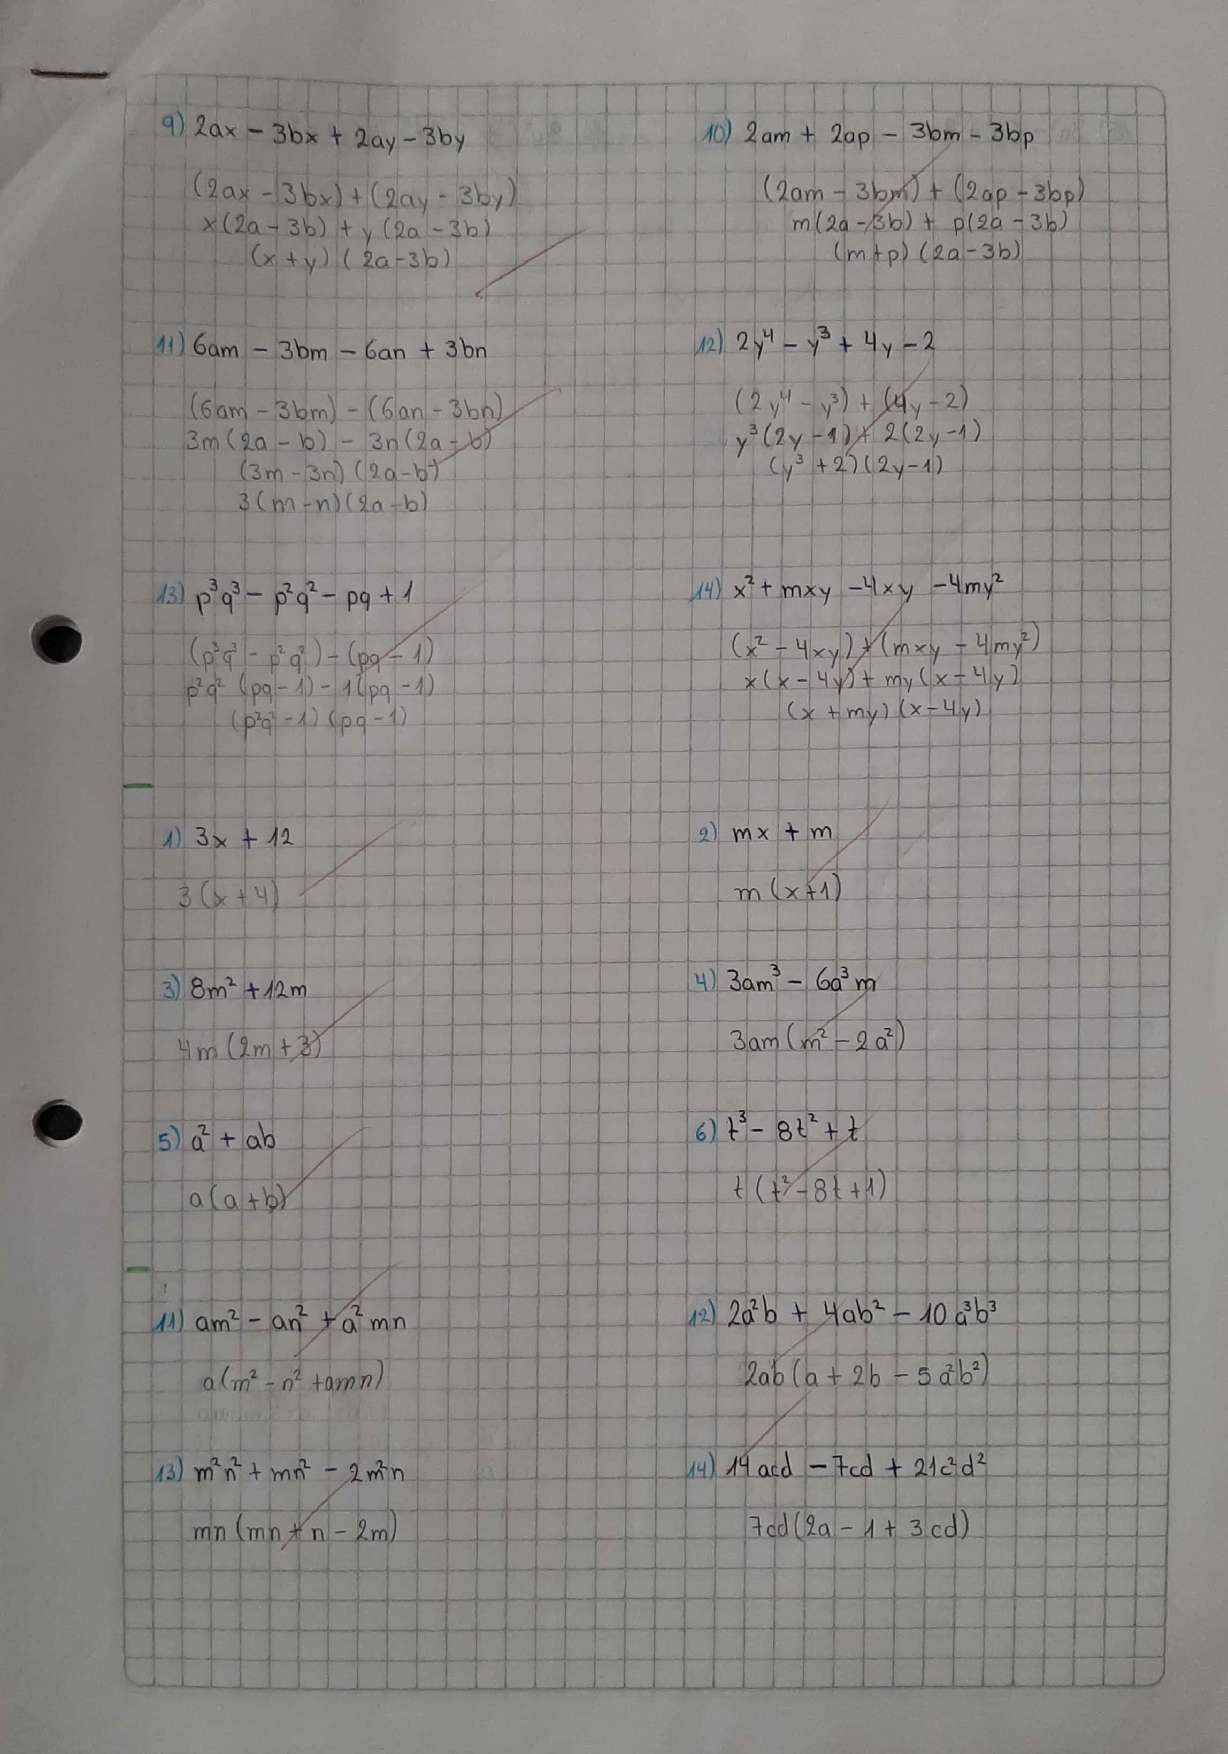 9) 2ax - 3bx + 2ay - 3by
(2ax - 3bx) + (2ay - 3by)
x(2a - 3b) + y(2a - 3b)
(x + y) (2a - 3b)
10) 2am + 2ap - 3bm - 3bp
(2am - 3bm) + (2ap - 3bp)
m(2a - 3b) + p(2a - 3b)
(m + p) (2a - 3b)
11) 6am - 3bm - 6an + 3bn
(6am - 3bm) - (6an - 3bn)
3m(2a - b) - 3n(2a - b)
(3m - 3n) (2a - b)
3(m - n)(2a - b)
12) 2y⁴ - y³ + 4y - 2
(2y⁴ - y³) + (4y - 2)
y³(2y - 1) + 2(2y - 1)
(y³ + 2)(2y - 1)
13) p³q³ - p²q² - pq + 1
(p³q³ - p²q²) - (pq - 1)
p²q² (pq - 1) - 1(pq - 1)
(p²q² - 1) (pq - 1)
14) x² + mxy - 4xy - 4my²
(x² - 4xy) + (mxy - 4my²)
x(x - 4y) + my(x - 4y)
(x + my) (x - 4y)
1) 3x + 12
3(x + 4)
2) mx + m
m(x + 1)
3) 8m² + 12m
4m(2m + 3)
4) 3am³ - 6a³m
3am(m² - 2a²)
5) a² + ab
a(a + b)
6) t³ - 8t² + t
t(t² - 8t + 1)
11) am² - an² + a²mn
a(m² - n² + amn)
12) 2a²b + 4ab² - 10a³b³
2ab(a + 2b - 5a²b²)
13) m²n² + mn² - 2m²n
mn(mn + n - 2m)
14) 14acd - 7cd + 21c²d²
7cd(2a - 1 + 3cd)